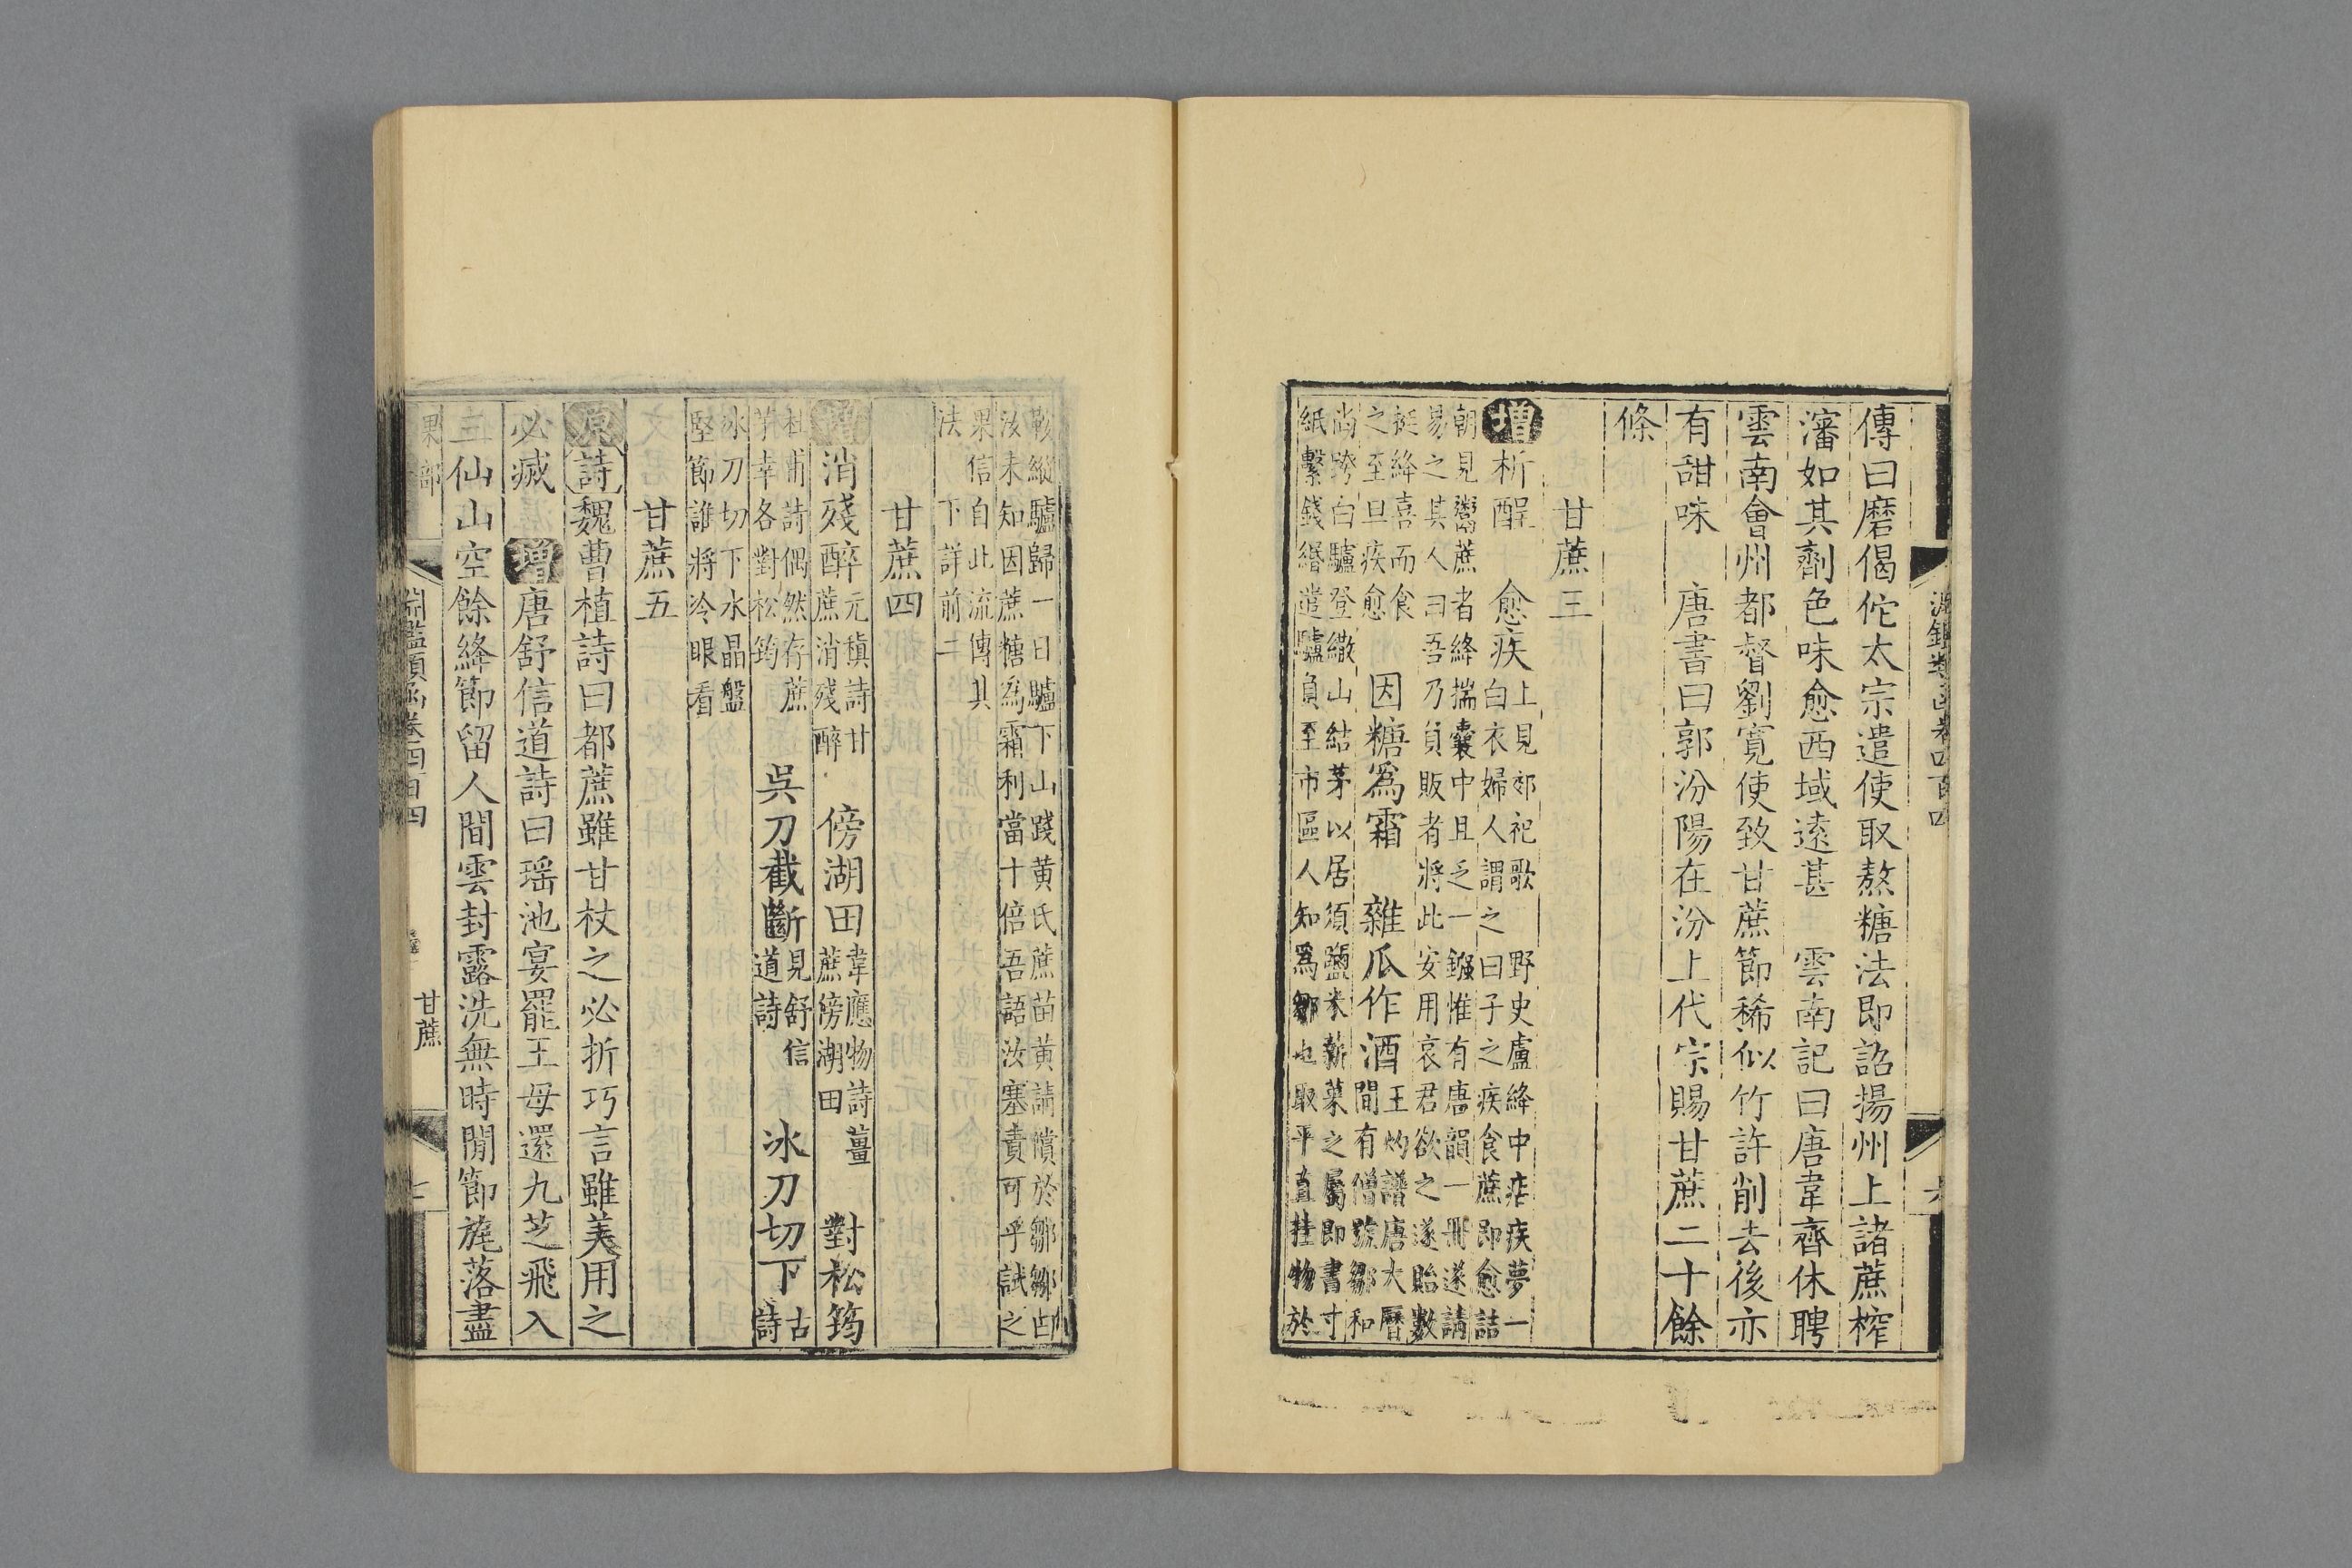 傳曰磨偈佗太宗遣使取熬糖法即詔揚州上諸蔗榨
瀋如其劑色味愈西域遠甚　雲南記曰唐韋齊休聘
雲南會州都督劉寬使致甘蔗節稀似竹許削去後亦
有甜味　唐書曰郭汾陽在汾上代宗賜甘蔗二十餘
條
甘蔗三
增析酲　愈疾上見郊祀歌　野史盧絳中痁疾夢一
白衣婦人謂之曰子之疾食蔗即愈詰
朝見鬻蔗者絳揣囊中且乏一鏹惟有唐韻一冊遂請
易之其人曰吾乃負販者將此安用哀君欲之遂貽數
挺絳喜而食
之至旦疾愈　因糖為霜　雜瓜作酒王灼譜唐大曆
間有僧號鄒和
尚跨白驢登繖山結茅以居須鹽米薪菜之屬即書寸
紙繫錢緡遣驢負至市區人知為鄒也取平直挂物於
鞍縱驢歸一日驢下山踐黃氏蔗苗黃請償於鄒鄒曰
汝未知因蔗糖為霜利當十倍吾語汝塞責可乎試之
果信自此流傳其
法　下詳前二
甘蔗四
增消殘醉元稹詩甘
蔗消殘醉　傍湖田韋應物詩薑
蔗傍湖田　對松筠
杜甫詩偶然存蔗
芋幸各對松筠　吳刀截斷見舒信
道詩　冰刀切下古
詩
冰刀切下水晶盤
堅節誰將冷眼看
甘蔗五
原詩魏曹植詩曰都蔗雖甘杖之必折巧言雖美用之
必滅　增唐舒信道詩曰瑤池宴罷王母還九芝飛入
三仙山空餘絳節留人間雲封露洗無時閒節旄落盡
果部
淵鑑類函卷四百四
甘蔗